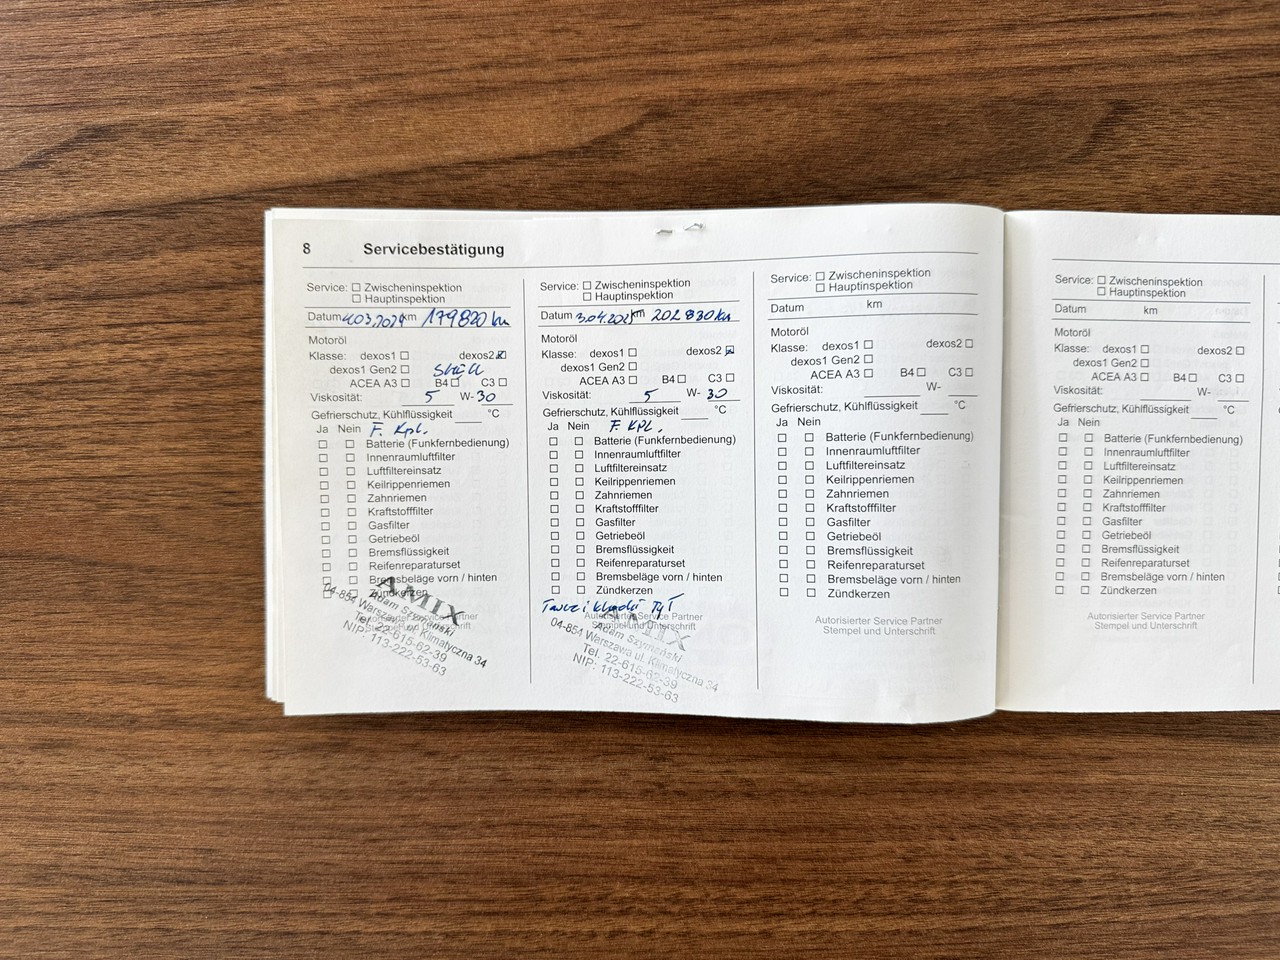 8 Servicebestätigung
Service: Zwischeninspektion
Hauptinspektion
Datum 4.03.2024 km 179820 km
Motoröl
Klasse: dexos1 dexos2
dexos1 Gen2 Shell
ACEA A3 B4 C3
Viskosität: 5 W- 30
Gefrierschutz, Kühlflüssigkeit °C
Ja Nein F. Kpl.
Batterie (Funkfernbedienung)
Innenraumluftfilter
Luftfiltereinsatz
Keilrippenriemen
Zahnriemen
Kraftstofffilter
Gasfilter
Getriebeöl
Bremsflüssigkeit
Reifenreparaturset
Bremsbeläge vorn / hinten
Zündkerzen
Autorisierter Service Partner
Stempel und Unterschrift
AMIX
Adam Szymański
04-854 Warszawa ul. Klimatyczna 34
Tel. 22-615-62-39
NIP: 113-222-53-63
Service: Zwischeninspektion
Hauptinspektion
Datum 3.04.2025 km 202830 km
Motoröl
Klasse: dexos1 dexos2
dexos1 Gen2
ACEA A3 B4 C3
Viskosität: 5 W- 30
Gefrierschutz, Kühlflüssigkeit °C
Ja Nein F. KPL.
Batterie (Funkfernbedienung)
Innenraumluftfilter
Luftfiltereinsatz
Keilrippenriemen
Zahnriemen
Kraftstofffilter
Gasfilter
Getriebeöl
Bremsflüssigkeit
Reifenreparaturset
Bremsbeläge vorn / hinten
Zündkerzen
Tarcze i Klocki Tył
Autorisierter Service Partner
Stempel und Unterschrift
AMIX
Adam Szymański
04-854 Warszawa ul. Klimatyczna 34
Tel. 22-615-62-39
NIP: 113-222-53-63
Service: Zwischeninspektion
Hauptinspektion
Datum km
Motoröl
Klasse: dexos1 dexos2
dexos1 Gen2
ACEA A3 B4 C3
Viskosität: W-
Gefrierschutz, Kühlflüssigkeit °C
Ja Nein
Batterie (Funkfernbedienung)
Innenraumluftfilter
Luftfiltereinsatz
Keilrippenriemen
Zahnriemen
Kraftstofffilter
Gasfilter
Getriebeöl
Bremsflüssigkeit
Reifenreparaturset
Bremsbeläge vorn / hinten
Zündkerzen
Autorisierter Service Partner
Stempel und Unterschrift
Service: Zwischeninspektion
Hauptinspektion
Datum km
Motoröl
Klasse: dexos1 dexos2
dexos1 Gen2
ACEA A3 B4 C3
Viskosität: W-
Gefrierschutz, Kühlflüssigkeit °C
Ja Nein
Batterie (Funkfernbedienung)
Innenraumluftfilter
Luftfiltereinsatz
Keilrippenriemen
Zahnriemen
Kraftstofffilter
Gasfilter
Getriebeöl
Bremsflüssigkeit
Reifenreparaturset
Bremsbeläge vorn / hinten
Zündkerzen
Autorisierter Service Partner
Stempel und Unterschrift